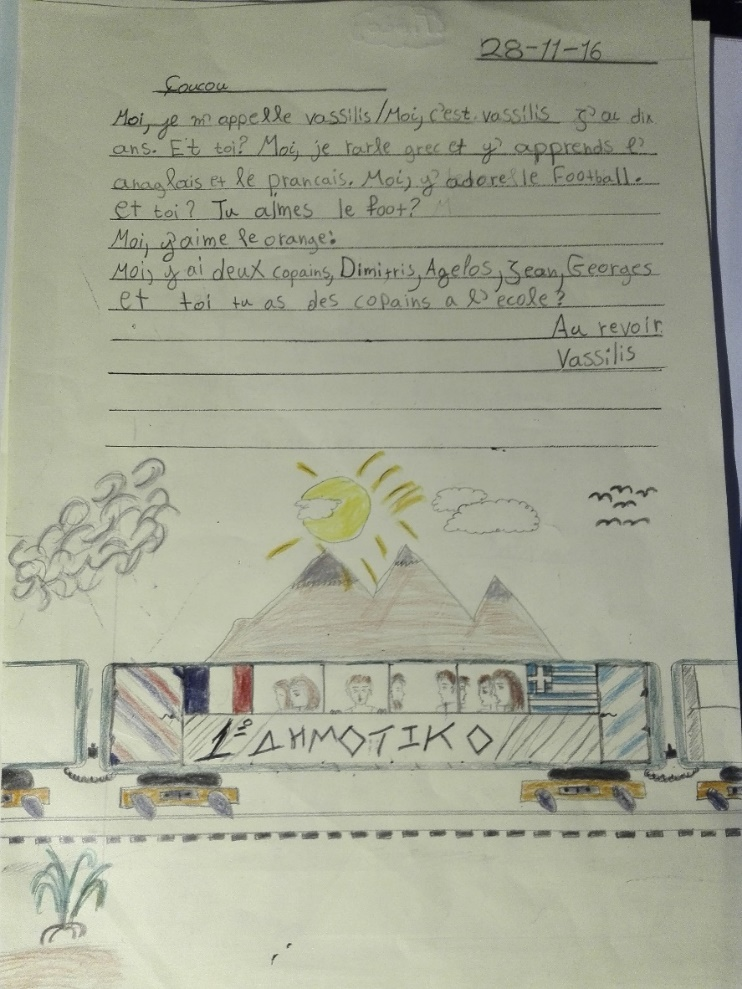 28-11-16
Coucou
Moi, je m'appelle vassilis/Moi, c'est vassilis j'ai dix
ans. Et toi? Moi, je rarle grec et y' apprends l'
anaglais et le prancais. Moi, y'adore le Football.
et toi? Tu aimes le foot?
Moi, y'aime le orange:
Moi, y'ai deux copains, Dimitris, Agelos, Jean, Georges
et toi tu as des copains a l'ecole?
Au revoir
Vassilis
1º ΔΗΜΟΤΙΚΟ